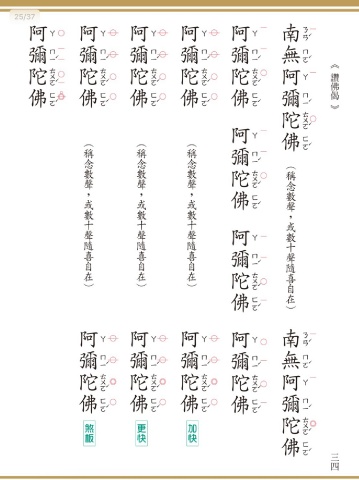 25/37
《讚佛偈》
南無阿彌陀佛
(稱念數聲，或數十聲隨喜自在)
南無阿彌陀佛
阿彌陀佛
阿彌陀佛
阿彌陀佛
阿彌陀佛
阿彌陀佛
(稱念數聲，或數十聲隨喜自在)
阿彌陀佛
加快
阿彌陀佛
(稱念數聲，或數十聲隨喜自在)
阿彌陀佛
更快
阿彌陀佛
(稱念數聲，或數十聲隨喜自在)
阿彌陀佛
煞板
阿彌陀佛
三四